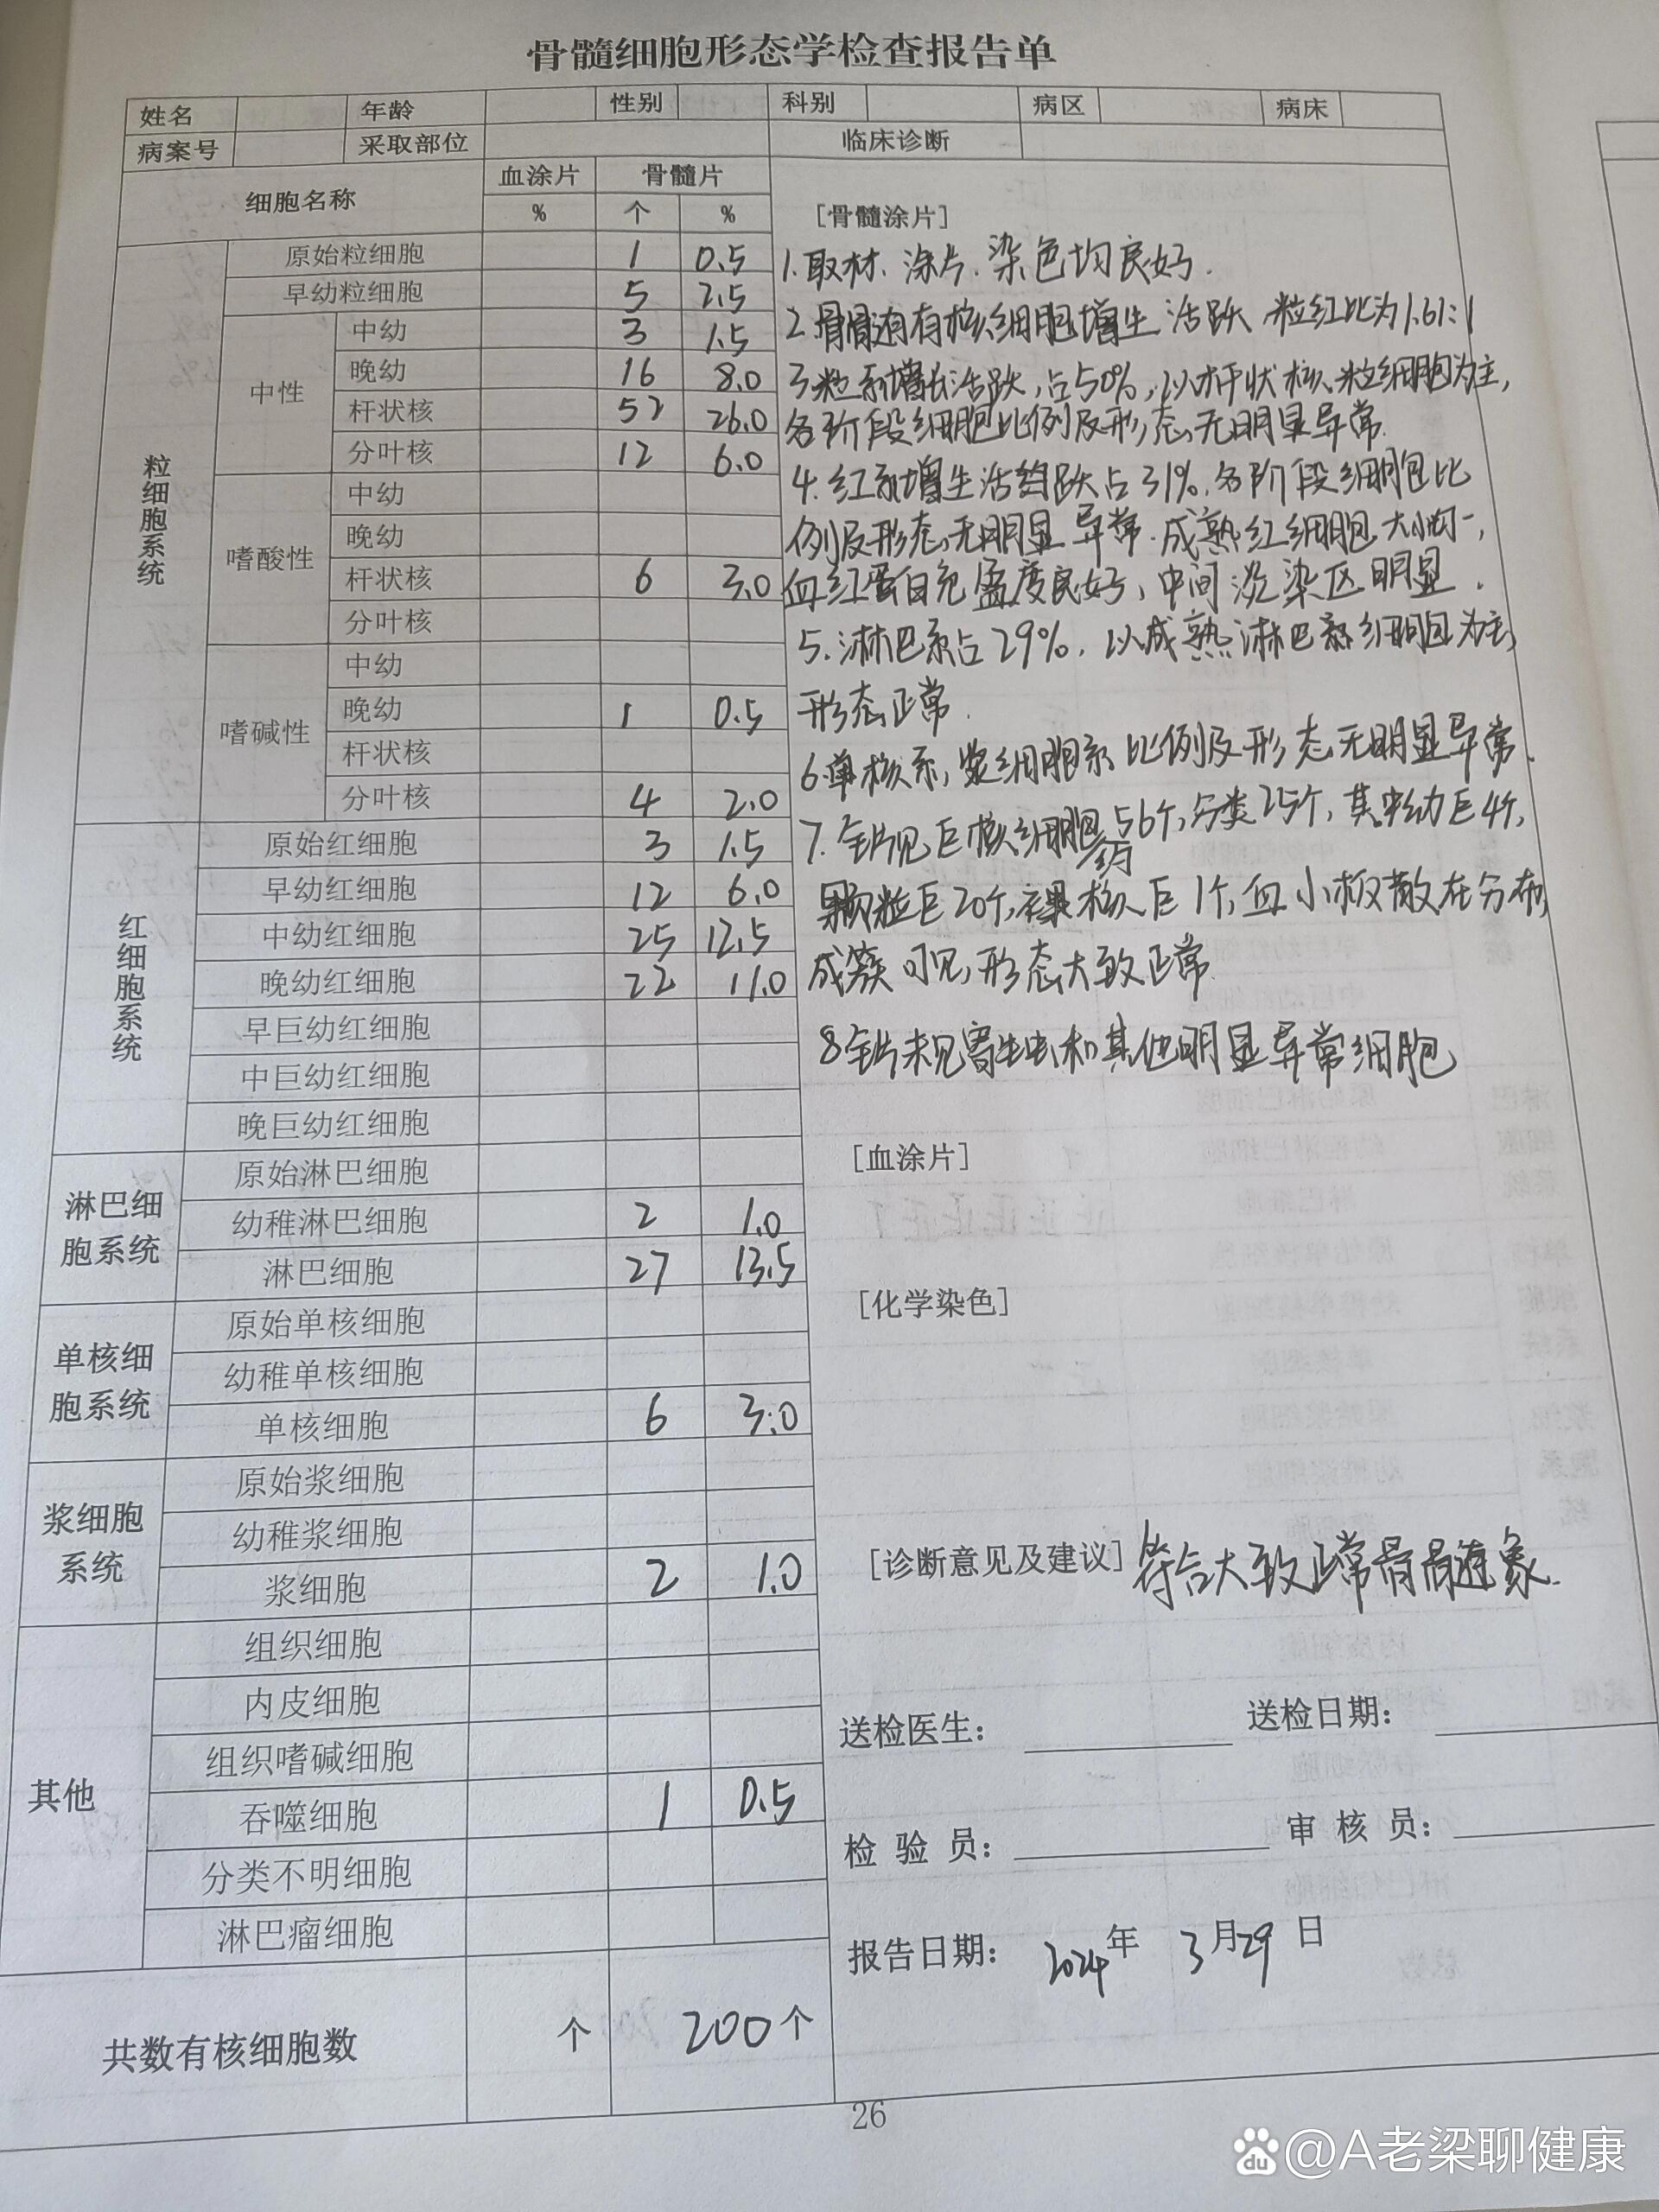 骨髓细胞形态学检查报告单
姓名 年龄 性别 科别 病区 病床
病案号 采取部位 临床诊断
细胞名称 血涂片 骨髓片
% 个 %
粒细胞系统
原始粒细胞 1 0.5
早幼粒细胞 5 2.5
中性
中幼 3 1.5
晚幼 16 8.0
杆状核 52 26.0
分叶核 12 6.0
嗜酸性
中幼
晚幼
杆状核 6 3.0
分叶核
嗜碱性
中幼
晚幼 1 0.5
杆状核
分叶核 4 2.0
红细胞系统
原始红细胞 3 1.5
早幼红细胞 12 6.0
中幼红细胞 25 12.5
晚幼红细胞 22 11.0
早巨幼红细胞
中巨幼红细胞
晚巨幼红细胞
淋巴细胞系统
原始淋巴细胞
幼稚淋巴细胞 2 1.0
淋巴细胞 27 13.5
单核细胞系统
原始单核细胞
幼稚单核细胞
单核细胞 6 3.0
浆细胞系统
原始浆细胞
幼稚浆细胞
浆细胞 2 1.0
其他
组织细胞
内皮细胞
组织嗜碱细胞
吞噬细胞 1 0.5
分类不明细胞
淋巴瘤细胞
共数有核细胞数 个 200个
[骨髓涂片]
1.取材、涂片、染色均良好.
2.骨髓有核细胞增生活跃,粒红比为1.61:1
3.粒系增生活跃,占50%,以杆状核粒细胞为主,
各阶段细胞比例及形态无明显异常.
4.红系增生活跃占31%,各阶段细胞比
例及形态无明显异常.成熟红细胞大小均一,
血红蛋白充盈度良好,中间淡染区明显.
5.淋巴系占29%,以成熟淋巴系细胞为主,
形态正常.
6.单核系,浆细胞系比例及形态无明显异常.
7.全片见巨核细胞约56个,分类25个,其中幼巨4个,
颗粒巨20个,裸核巨1个,血小板散在分布,
成簇可见,形态大致正常.
8.全片未见寄生虫和其他明显异常细胞
[血涂片]
[化学染色]
[诊断意见及建议] 符合大致正常骨髓象.
送检医生: 送检日期:
检验员: 审核员:
报告日期: 2024年 3月29日
26
du @A老梁聊健康